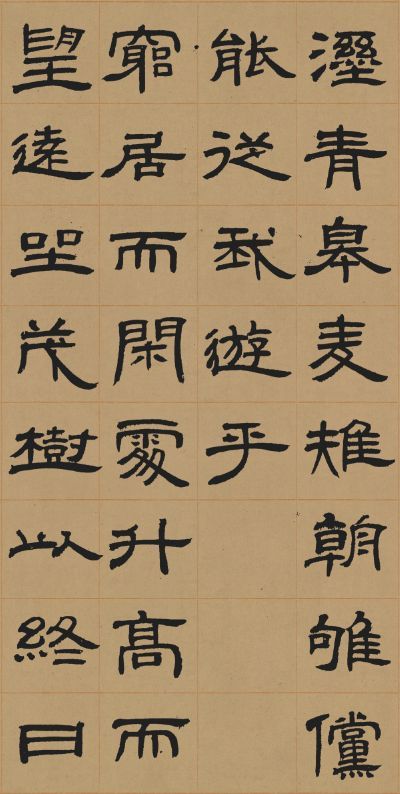 溼青皋麦雉朝雊儻
能従我遊乎
窮居而閑處升髙而
望遠坐茂樹以終日